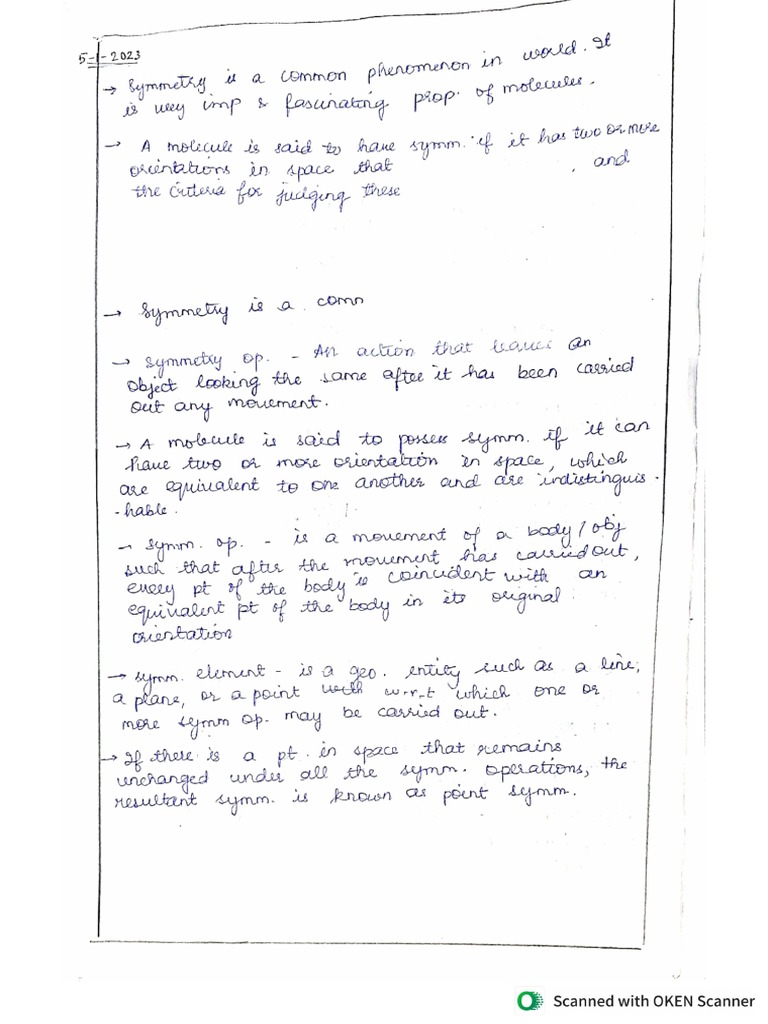 5-1-2023
→ Symmetry is a common phenomenon in world. It
is very imp & fascinating prop. of molecules.
→ A molecule is said to have symm. if it has two or more
orientations in space that , and
the criteria for judging these
→ Symmetry is a comn
→ Symmetry op. - An action that leaves an
object looking the same after it has been carried
out any movement.
→ A molecule is said to possess symm. if it can
have two or more orientation in space, which
are equivalent to one another and are indistinguis-
-hable.
→ Symm. op. - is a movement of a body / obj
such that after the movement has carried out,
every pt of the body is coincident with an
equivalent pt of the body in its original
orientation
→ Symm. element - is a geo. entity such as a line,
a plane, or a point with w.r.t which one or
more symm op. may be carried out.
→ If there is a pt. in space that remains
unchanged under all the symm. operations, the
resultant symm. is known as point symm.
Scanned with OKEN Scanner